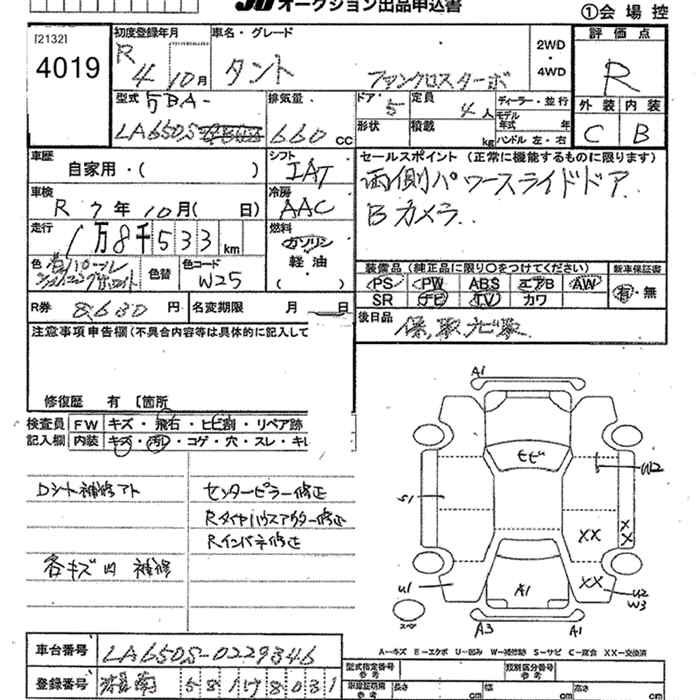 オークション出品申込書
①会場控
[2132]
4019
初度登録年月
R 4年 10月
車名・グレード
タント ファンクロスターボ
2WD・4WD
評価点
R
型式
5BA-
LA650S
排気量
660 cc
ドア・形状
5
定員
4人
積載
kg
ディーラー・並行
モデル年式 年
ハンドル 左・右
外装 内装
C B
車歴
自家用・( )
シフト
IAT
セールスポイント (正常に機能するものに限ります)
両側パワースライドドア
Bカメラ
車検
R 7年 10月( 日)
冷房
AAC
走行
1万8千533km
燃料
ガソリン
軽油
色
色替
色コード
W25
装備品 (純正品に限り○をつけてください)
PS PW ABS エアB AW
SR ナビ TV カワ
新車保証書
有・無
R券
8,630円
名変期限 月 日
後日品
保、取、ナビ取
注意事項申告欄(不具合内容等は具体的に記入して
修復歴 有 [箇所
検査員記入欄
FW キズ・飛石・ヒビ割・リペア跡
内装 キズ・汚レ・コゲ・穴・スレ・キレ
Dシート補修アト
各キズ凹補修
センターピラー修正
Rタイヤハウスアウター修正
Rインパネ修正
A1
モビ
W2
S1
XX
XX
XX
U1
A1
U2
W3
スペア
A3
A1
A―キズ E―エクボ U―凹み W―補修跡 S―サビ C―腐食 XX―交換済
車台番号
LA650S-0229346
登録番号
581 78031
型式指定番号 参考
類別区分番号 参考
車検証明細 参考
長さ cm
幅 cm
高さ cm